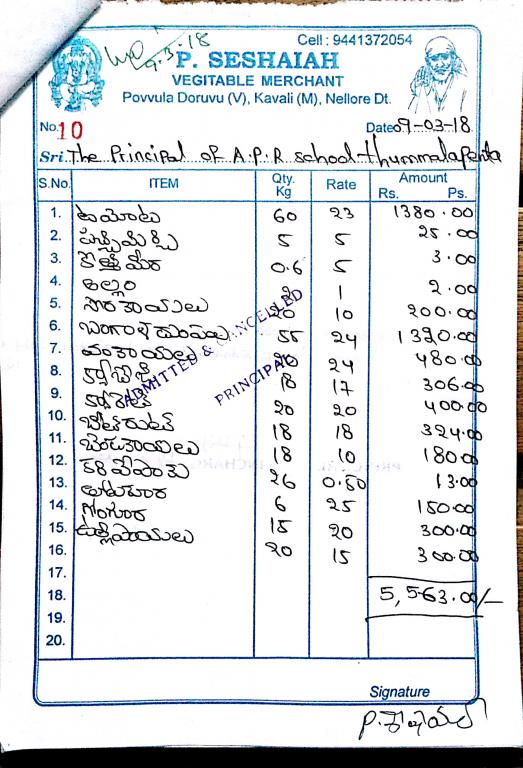 9.3.18
Cell : 9441372054
P. SESHAIAH
VEGITABLE MERCHANT
Povvula Doruvu (V), Kavali (M), Nellore Dt.
No. 10 Date 09-03-18
Sri. The Principal of A.P.R school-thummalapenta
S.No. ITEM Qty. Kg Rate Amount Rs. Ps.
1. టమోటు 60 23 1380.00
2. పచ్చిమిర్చి 5 5 25.00
3. కొత్తిమీర 0.6 5 3.00
4. అల్లం 2 1 2.00
5. సొరకాయలు 20 10 200.00
6. బంగాళదుంపలు 55 24 1320.00
7. వంకాయలు 20 24 480.00
8. క్యాబేజి 18 17 306.00
9. క్యారెట్ 20 20 400.00
10. బీట్‌రూట్ 18 18 324.00
11. బెండకాయలు 18 10 180.00
12. కరివేపాకు 26 0.50 13.00
13. 6 25 150.00
14. గోంగూర 15 20 300.00
15. ఉల్లిపాయలు 20 15 300.00
16.
17.
18. 5,563.00/-
19.
20.
ADMITTED & CANCELLED
PRINCIPAL
Signature
P. శేషయ్య